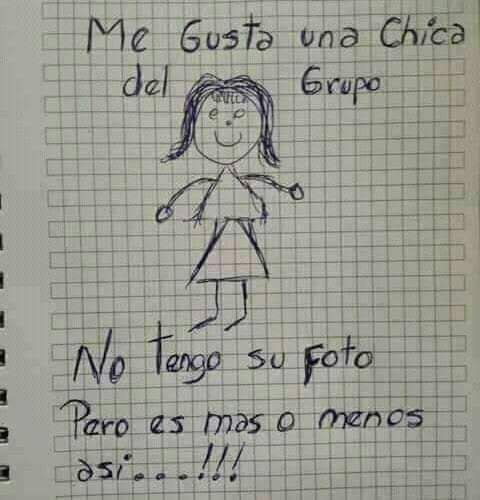 Me Gusta una Chica
del Grupo
No tengo su Foto
Pero es mas o menos
asi....!!!